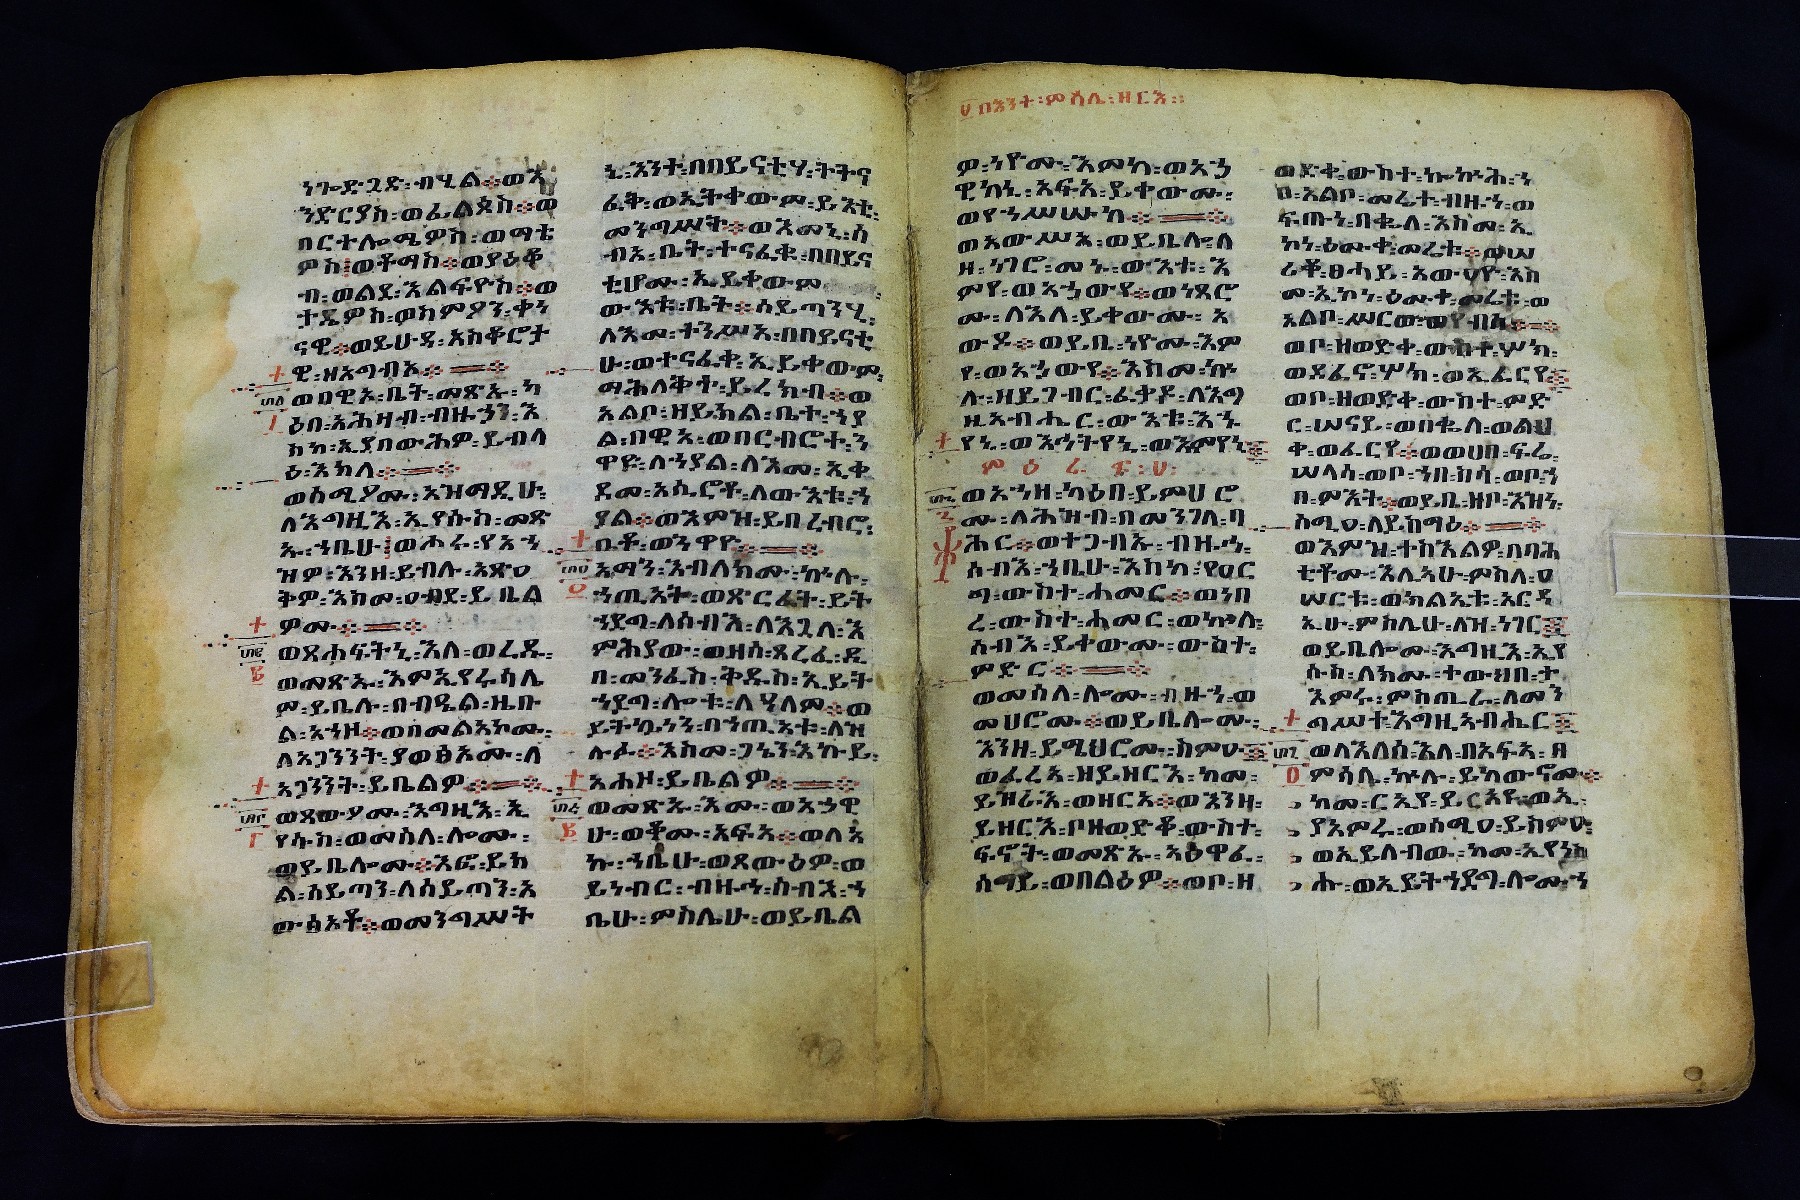 ነጐድጓድ፡ብሂል፨ወእ
ንድርያስ፡ወፊልጶስ፨ወ
በርተሎሜዎስ፡ወማቴ
ዎስ፤ወቶማስ፨ወያዕቆ
ብ፡ወልደ፡እልፍዮስ፨ወ
ታዴዎስ፡ወስምዖን፡ቀነ
ናዊ፨ወይሁዳ፡አስቆሮታ
ዊ፡ዘአግብኦ፨
ወበዊኦ፡ቤተ፡መጽኡ፡ካ
ዕበ፡አሕዛብ፡ብዙኃን፡እ
ስከ፡ኢያበውሕዎ፡ይብላ
ዕ፡እክለ፨
ወሰሚዖሙ፡አዝማዲሁ፡
ለእግዚእ፡ኢየሱስ፡መጽ
ኡ፡ኀቤሁ፤ወሖሩ፡የአኀ
ዝዎ፡እንዘ፡ይብሉ፡አጽዐ
ቅዎ፡እስመ፡ዐብደ፡ይቤል
ዎሙ፨
ወጸሐፍትኒ፡እለ፡ወረዱ፡
ወመጽኡ፡እምኢየሩሳሌ
ም፡ይቤሉ፡በብዔል፡ዜቡ
ል፡አኀዞ፨ወበመልአኮሙ፡
ለአጋንንት፡ያወፅኦሙ፡ለ
አጋንንት፡ይቤልዎ፨
ወጸውዖሙ፡እግዚእ፡ኢ
የሱስ፡ወመሰለ፡ሎሙ፡
ወይቤሎሙ፨እፎ፡ይክ
ል፡ሰይጣን፡ለሰይጣን፡አ
ውፅኦቶ፨ወመንግሥት
ኒ፡እንተ፡በበይናቲሃ፡ትትና
ፈቅ፡ወኢትቀውም፡ይእቲ፡
መንግሥት፨ወእመኒ፡ሰ
ብአ፡ቤት፡ተናፈቁ፡በበይና
ቲሆሙ፡ኢይቀውም
ውእቱ፡ቤት፨ሰይጣንሂ፡
ለእመ፡ተንሥአ፡በበይናቲ
ሁ፡ወተናፈቀ፡ኢይቀውም፡
ማሕለቅተ፡ይረክብ፨ወ
አልቦ፡ዘይክል፡ቤተ፡ኀያ
ል፡በዊአ፡ወበርብሮተ፡ን
ዋዩ፡ለኀያል፡ለእመ፡ኢቀ
ደመ፡አሲሮቶ፡ለውእቱ፡ኀ
ያል፨ወእምዝ፡ይበረብሮ፡
ቤቶ፡ወንዋዮ፨
አማን፡እብለክሙ፡ኵሉ፡
ኀጢአት፡ወጽርፈት፡ይት
ኀደግ፡ለሰብእ፡ለእጓለ፡እ
ምሕያው፡ወዘሰ፡ጸረፈ፡ዲ
በ፡መንፈስ፡ቅዱስ፡ኢይት
ኀደግ፡ሎቱ፡ለዓለም፨ወ
ይትኴነን፡በኀጢአቱ፡ለዝ
ሉፉ፨እስመ፡ጋኔን፡እኩይ፡
አሐዞ፡ይቤልዎ፨
ወመጽኡ፡እሙ፡ወአኃዊ
ሁ፡ወቆሙ፡አፍአ፨ወለአ
ኩ፡ኀቤሁ፡ወጸውዕዎ፡ወ
ይነብር፡ብዙኅ፡ሰብእ፡ኀ
ቤሁ፡ምስሌሁ፡ወይቤል
፬ በእንተ፡ምሳሌ፡ዘርእ፡፡
ዎ፡ነዮሙ፡እምከ፡ወአኃ
ዊከኒ፡አፍአ፡ይቀውሙ፡
ወየኀሥሡከ፨
ወአውሥአ፡ወይቤሎ፡ለ
ዘ፡ነገሮ፡መኑ፡ውእቱ፡እ
ምየ፡ወአኃውየ፨ወነጸሮ
ሙ፡ለእለ፡ይቀውሙ፡አ
ውዶ፨ወይቤ፡ነዮሙ፡እም
የ፡ወአኃውየ፨እስመ፡ኵ
ሉ፡ዘይገብር፡ፈቃዶ፡ለእግ
ዚአብሔር፡ውእቱ፡እኁ
የኒ፡ወእኅትየኒ፡ወእምየኒ፨
ምዕራፍ፡፬፡
ወአኀዘ፡ካዕበ፡ይምህሮ
ሙ፡ለሕዝብ፡በመንገለ፡ባ
ሕር፨ወተጋብኡ፡ብዙኅ፡
ሰብእ፡ኀቤሁ፡እስከ፡የዐር
ግ፡ውስተ፡ሐመር፨ወነበ
ረ፡ውስተ፡ሐመር፡ወኵሉ፡
ሰብእ፡ይቀውሙ፡ውስተ፡
ምድር፨
ወመሰለ፡ሎሙ፡ብዙኀ፡ወ
መሀሮሙ፨ወይቤሎሙ፡
እንዘ፡ይሜህሮሙ፡ስምዑ፨
ወፈረአ፡ዘይዘርእ፡ከመ፡
ይዝራእ፡ወዘርአ፨ወእንዘ፡
ይዘርእ፡ቦዘወድቀ፡ውስተ፡
ፍኖት፡ወመጽኡ፡አዕዋፈ፡
ሰማይ፡ወበልዕዎ፨ወቦ፡ዘ
ወድቀ፡ውስተ፡ኰኵሕ፡ኀ
በ፡አልቦ፡መሬተ፡ብዙኀ፡ወ
ፍጡነ፡በቈለ፡እስመ፡ኢ
ኮነ፡ዕሙቀ፡መሬቱ፨ወሠ
ሪቆ፡ፀሓይ፡አውዐዮ፡እስ
መ፡ኢኮነ፡ዕሙቀ፡መሬቱ፡ወ
አልቦ፡ሥርው፡ወየብሰ፨
ወቦ፡ዘወድቀ፡ውስተ፡ሦክ፡
ወደፈኖ፡ሦክ፡ወኢፈርየ፨
ወቦ፡ዘወድቀ፡ውስተ፡ምድ
ር፡ሠናይ፡ወበቈለ፡ወልህ
ቀ፡ወፈርየ፨ወወሀበ፡ፍሬ፡
ሠላሳ፡ወቦ፡ኀበ፡ስሳ፡ወቦ፡ኀ
በ፡ምእት፨ወይቤ፡ዘቦ፡እዝነ፡
ሰሚዐ፡ለይስማዕ፨
ወእምዝ፡ተስእልዎ፡በባሕ
ቲቶሙ፡እሊአሁ፡ምስለ፡፲
ወይቤሎሙ፡እግዚእ፡ኢየ
ሱስ፡ለክሙ፡ተውህበ፡ታ
እምሩ፡ምስጢራ፡ለመን
ግሥተ፡እግዚአብሔር፨
ወለእለሰ፡እለ፡በአፍአ፡በ
ምሳሌ፡ኵሉ፡ይከውኖሙ፨
ከመ፡ርእየ፡ይርአዩ፡ወኢ
ያእምሩ፡ወሰሚዐ፡ይስምዑ፡
ወኢይለብው፡ከመ፡ኢየነስ
ሑ፡ወኢይትኀደግ፡ሎሙ፡ኀ